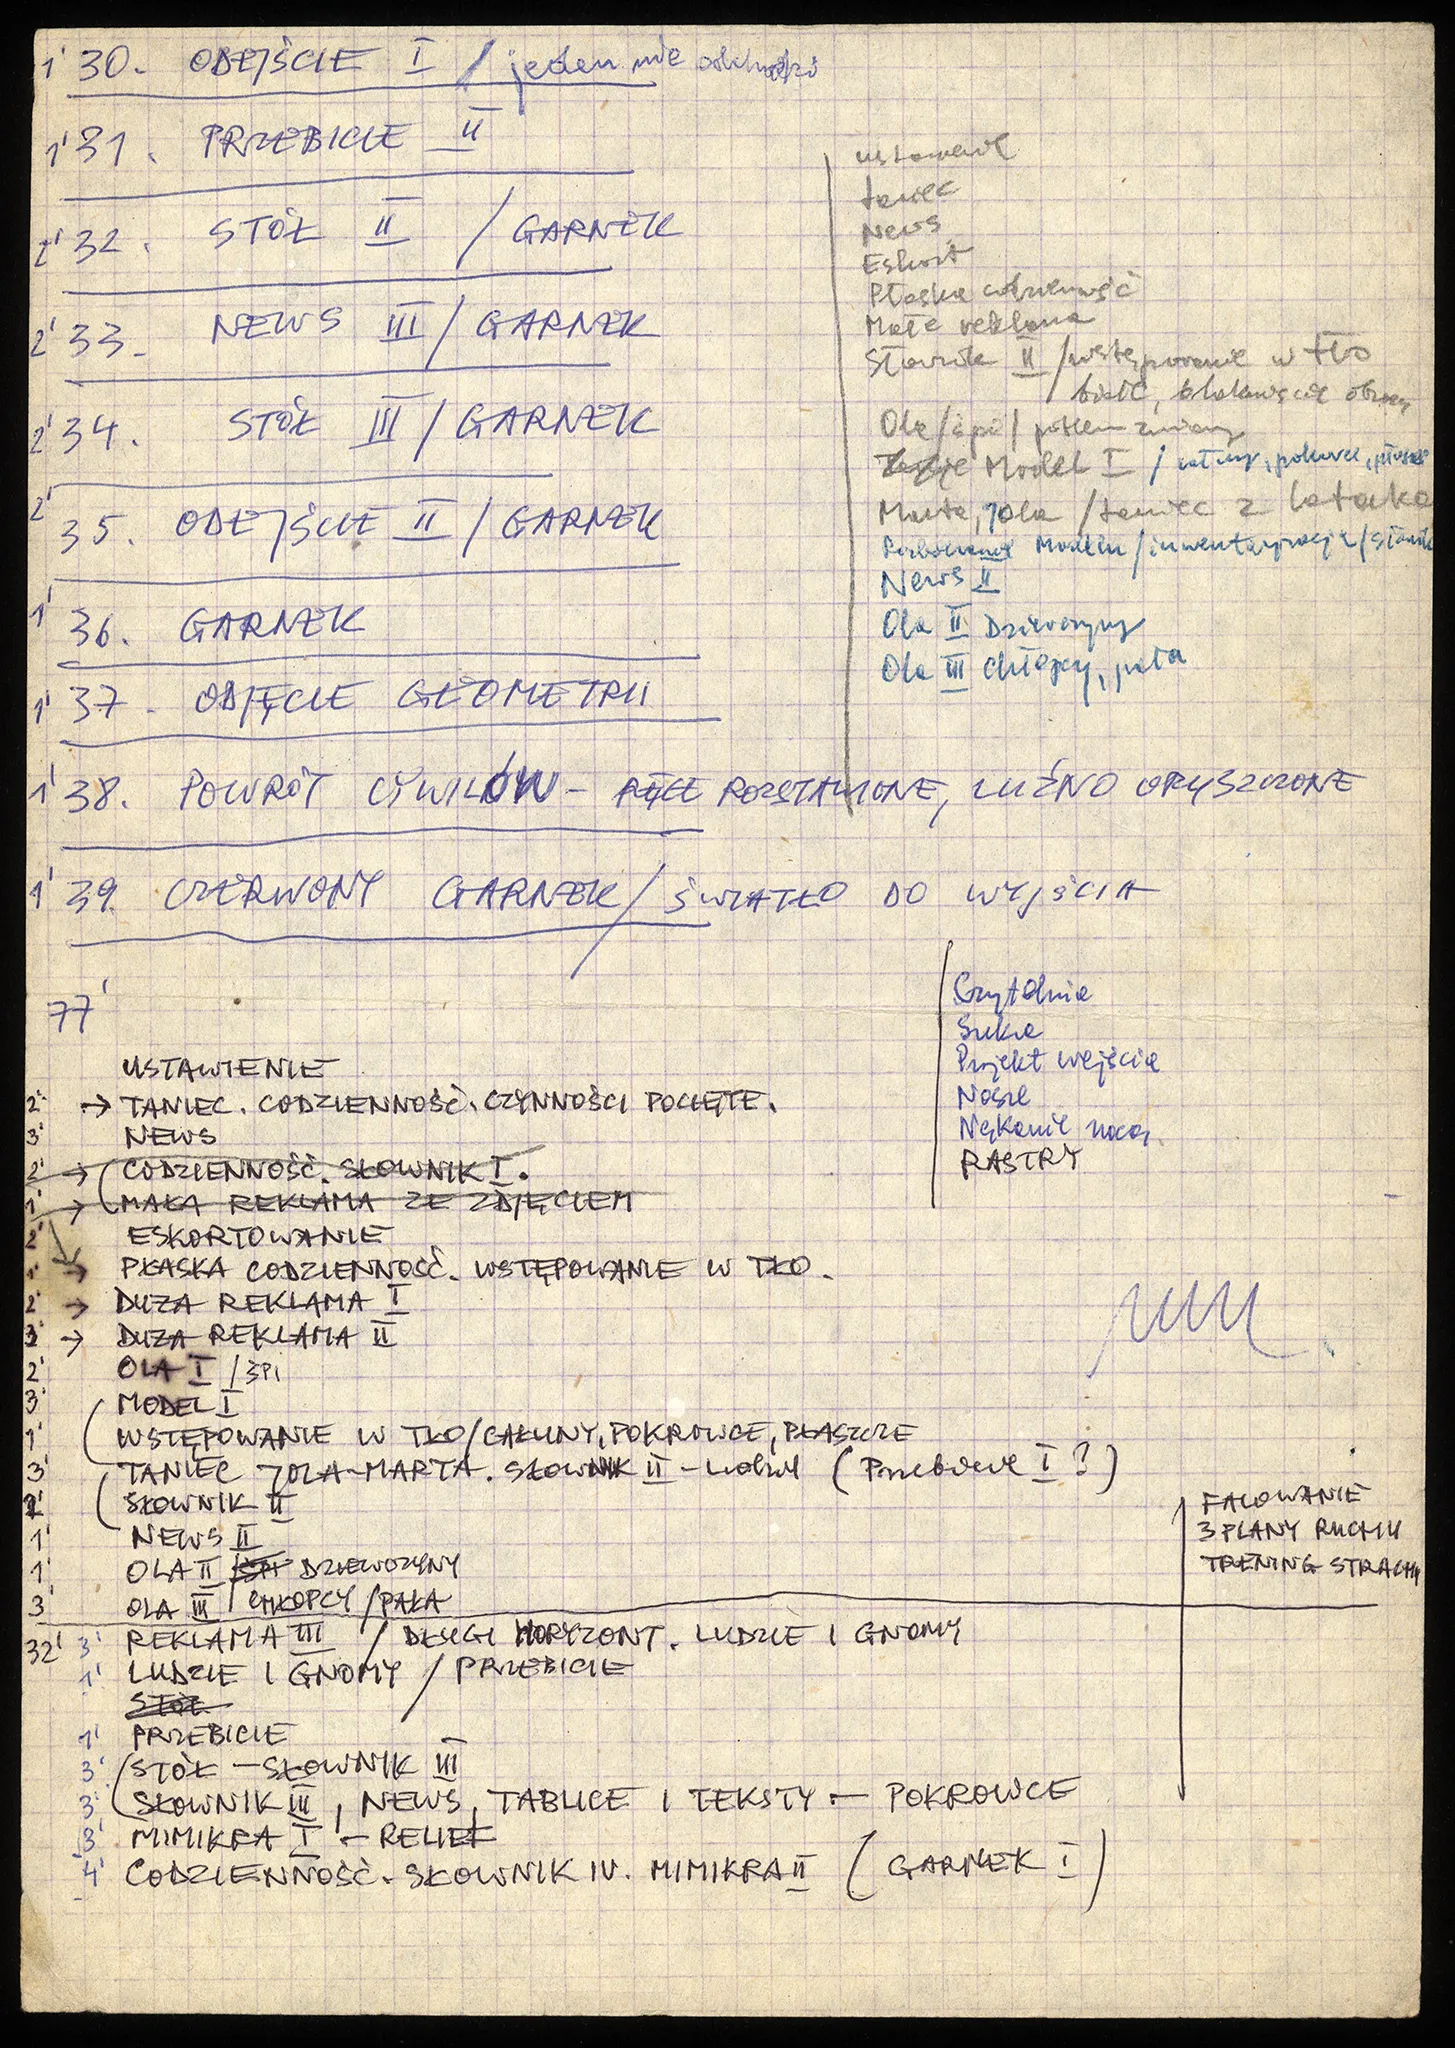 1' 30. ODEJŚCIE I / jeden nie odchodzi
1' 31. PRZEBICIE II
2' 32. STÓŁ II / GARNEK
2' 33. NEWS III / GARNEK
2' 34. STÓŁ III / GARNEK
2' 35. ODEJŚCIE II / GARNEK
1' 36. GARNEK
1' 37. ODJĘCIE GEOMETRII
1' 38. POWRÓT CYWILÓW – RĘCE ROZSTAWIONE, LUŹNO OPUSZCZONE
1' 39. CZERWONY GARNEK / ŚWIATŁO DO WYJŚCIA
77'
ustawienie
taniec
News
Eskort
Płaska codzienność
Mała reklama
Słownik II / wstępowanie w tło
Ola / śpi / potem zmiany
Model I / całuny, pokrowce, płaszcze
Marta, Jola / taniec z latarką
Modelu / inwentaryzacja / słownik
News II
Ola II Dziewczyny
Ola III chłopcy, pała
Czytelnia
Suka
Projekt wejścia
Nosze
Nękanie nocą
RASTRY
USTAWIENIE
2' → TANIEC. CODZIENNOŚĆ. CZYNNOŚCI POCIĘTE.
3' NEWS
2' → CODZIENNOŚĆ. SŁOWNIK I.
1' → MAŁA REKLAMA ZE ZDJĘCIEM
2' ESKORTOWANIE
1' → PŁASKA CODZIENNOŚĆ. WSTĘPOWANIE W TŁO.
2' → DUŻA REKLAMA I
3' → DUŻA REKLAMA II
2' OLA I / ŚPI
3' MODEL I
1' WSTĘPOWANIE W TŁO / CAŁUNY, POKROWCE, PŁASZCZE
3' TANIEC JOLA – MARTA. SŁOWNIK II – (Przebicie I ?)
2' SŁOWNIK II
1' NEWS II
1' OLA II / DZIEWCZYNY
3' OLA III / CHŁOPCY / PAŁA
FALOWANIE
3 PLANY RUCHU
TRENING STRACHU
32' 3' REKLAMA III / DRUGI HORYZONT. LUDZIE I GNOMY
1' LUDZIE I GNOMY / PRZEBICIE
STÓŁ
1' PRZEBICIE
3' STÓŁ – SŁOWNIK III
3' SŁOWNIK III, NEWS, TABLICE I TEKSTY – POKROWCE
3' MIMIKRA I – RELIEF
4' CODZIENNOŚĆ. SŁOWNIK IV. MIMIKRA II (GARNEK I)